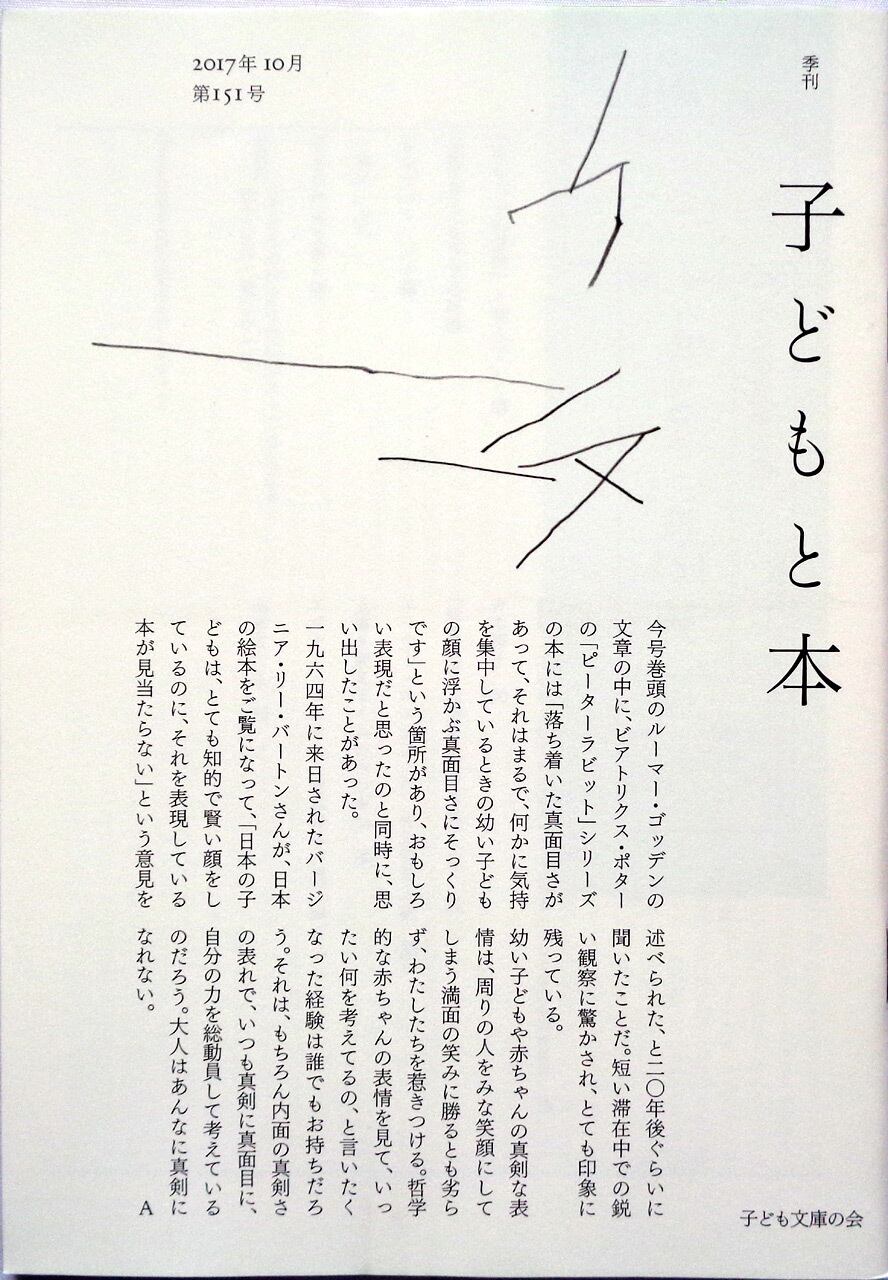 季刊
子どもと本
2017年 10月
第151号
今号巻頭のルーマー・ゴッデンの
文章の中に、ビアトリクス・ポター
の「ピーターラビット」シリーズ
の本には「落ち着いた真面目さが
あって、それはまるで、何かに気持
を集中しているときの幼い子ども
の顔に浮かぶ真面目さにそっくり
です」という箇所があり、おもしろ
い表現だと思ったのと同時に、思
い出したことがあった。
一九六四年に来日されたバージ
ニア・リー・バートンさんが、日本
の絵本をご覧になって、「日本の子
どもは、とても知的で賢い顔をし
ているのに、それを表現している
本が見当たらない」という意見を
述べられた、と二〇年後ぐらいに
聞いたことだ。短い滞在中での鋭
い観察に驚かされ、とても印象に
残っている。
幼い子どもや赤ちゃんの真剣な表
情は、周りの人をみな笑顔にして
しまう満面の笑みに勝るとも劣ら
ず、わたしたちを惹きつける。哲学
的な赤ちゃんの表情を見て、いっ
たい何を考えてるの、と言いたく
なった経験は誰でもお持ちだろ
う。それは、もちろん内面の真剣さ
の表れで、いつも真剣に真面目に、
自分の力を総動員して考えている
のだろう。大人はあんなに真剣に
なれない。
A
子ども文庫の会